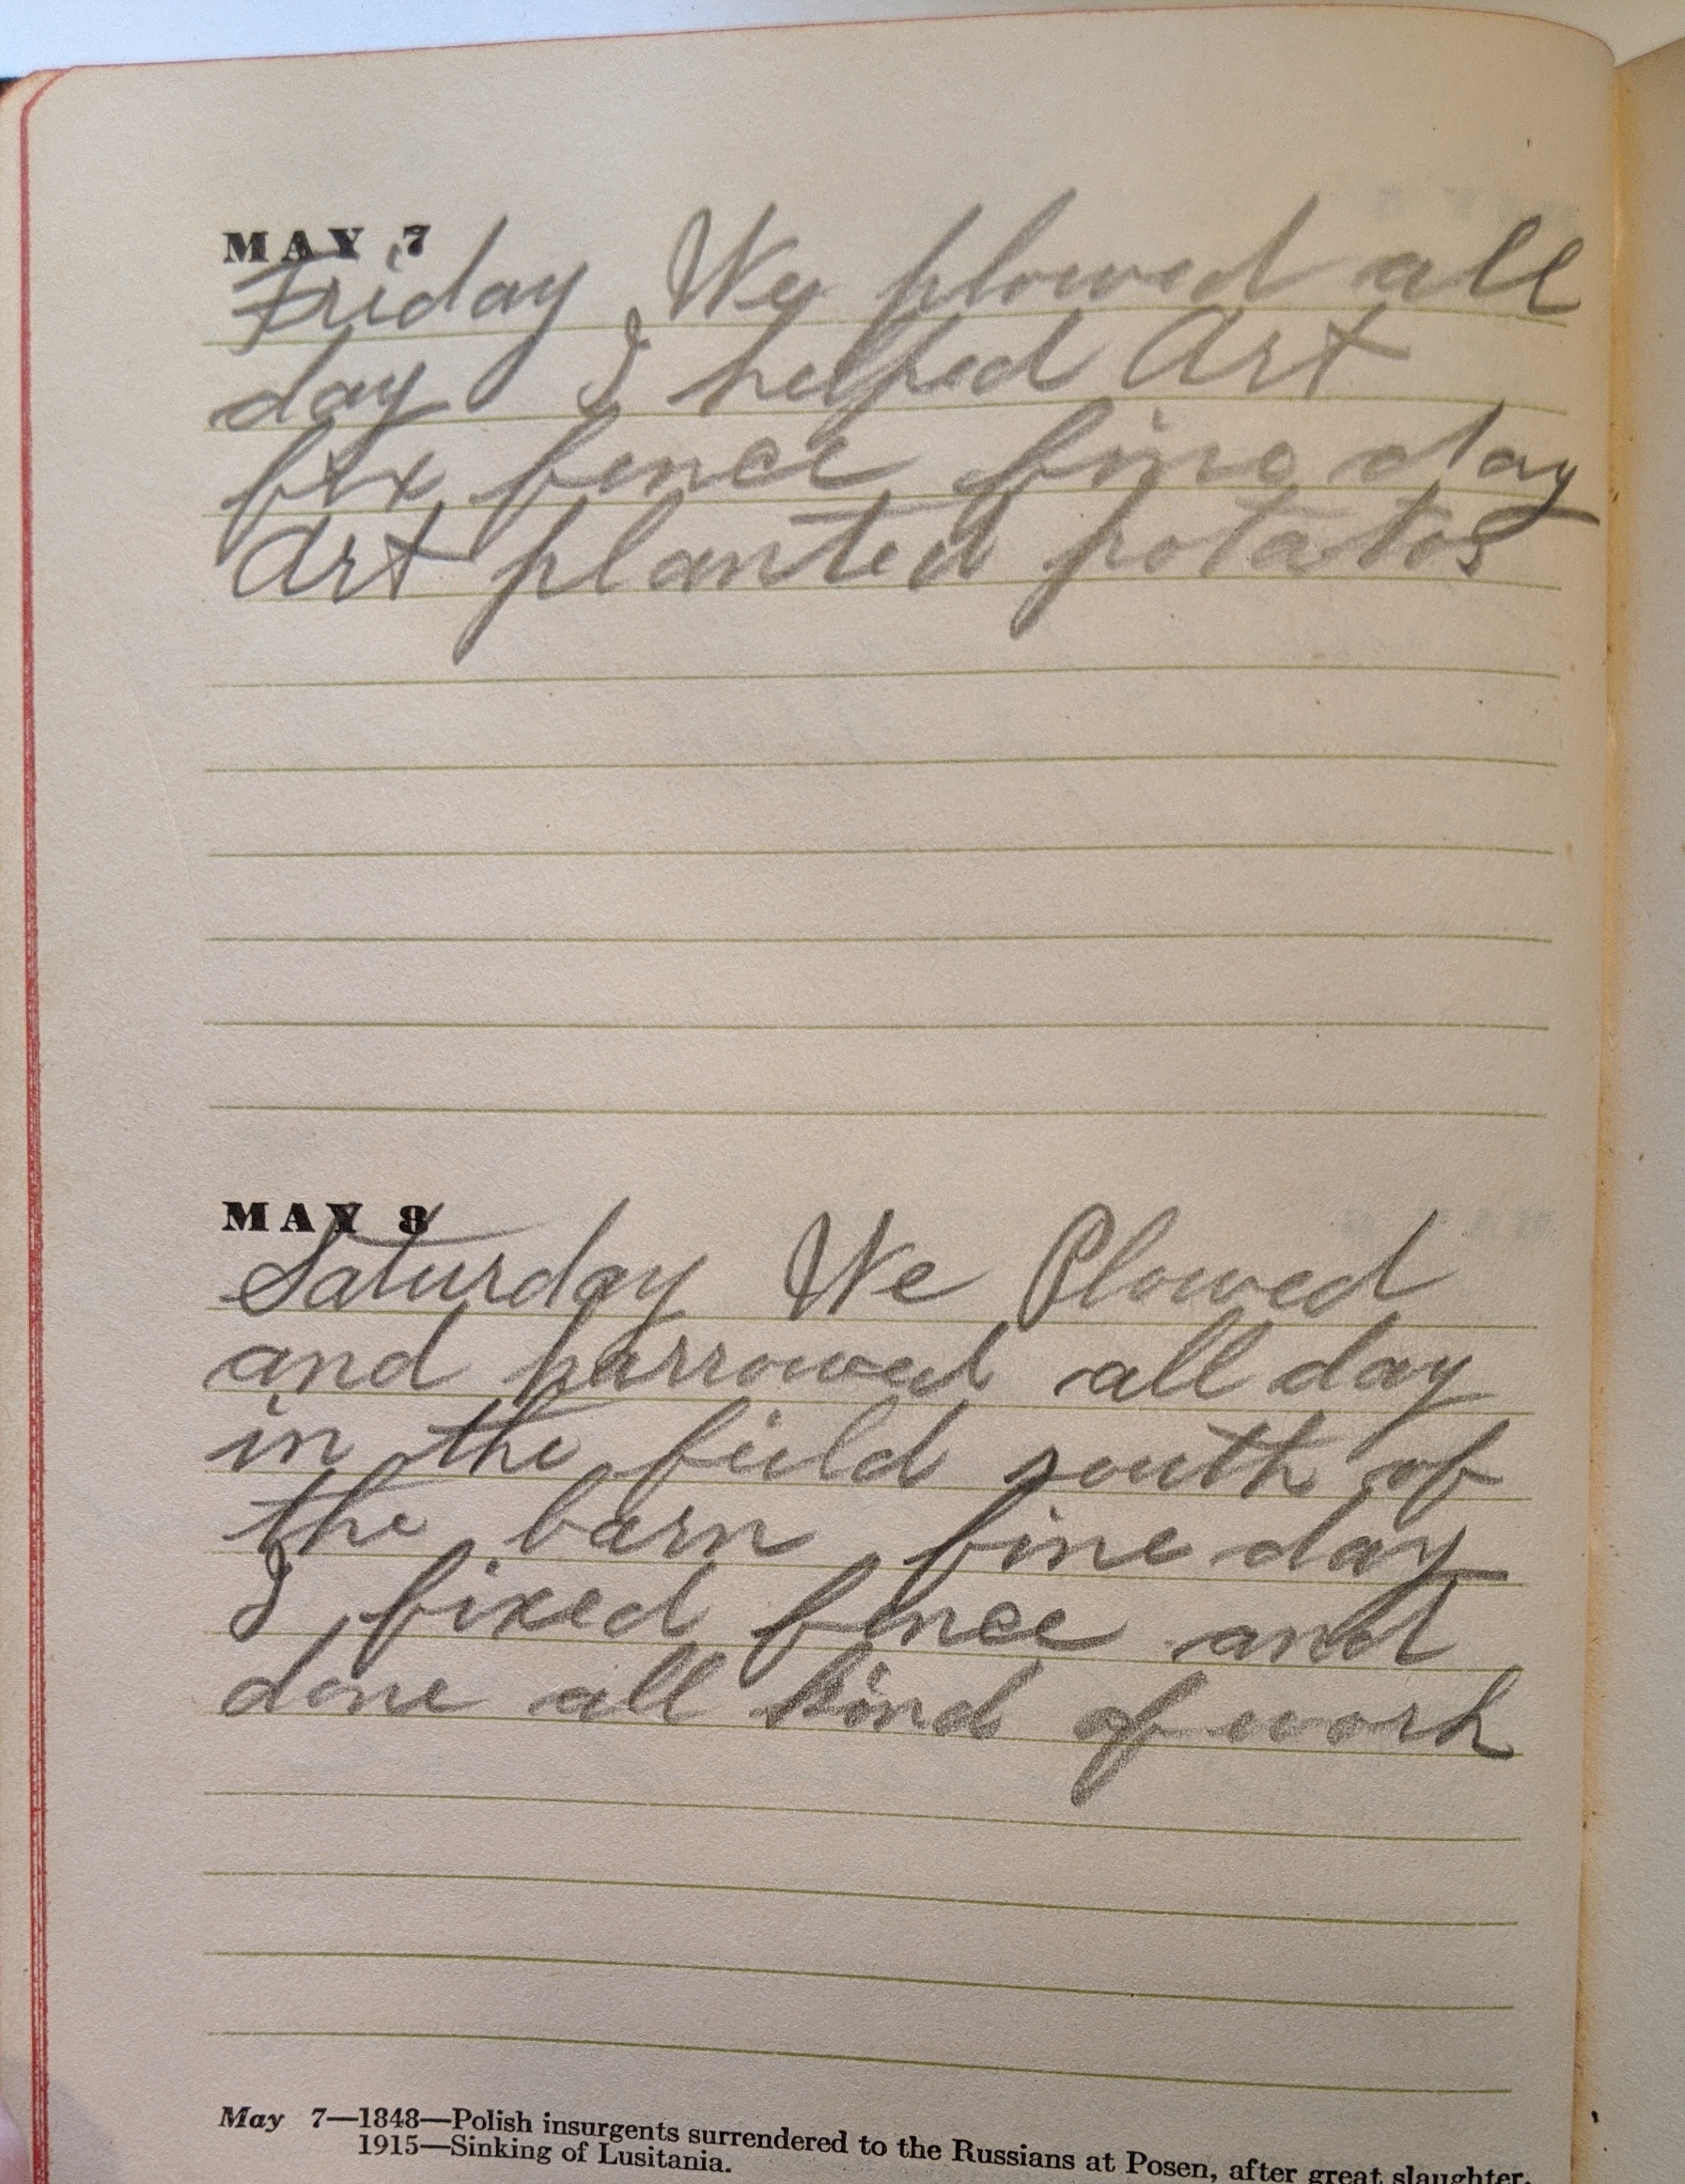 MAY 7
Friday We plowed all
day I helped Art
fix fence fine day
Art planted potatos
MAY 8
Saturday We Plowed
and harrowed all day
in the field south of
the barn fine day
I fixed fence and
done all kind of work
May 7—1848—Polish insurgents surrendered to the Russians at Posen, after great slaughter.
1915—Sinking of Lusitania.